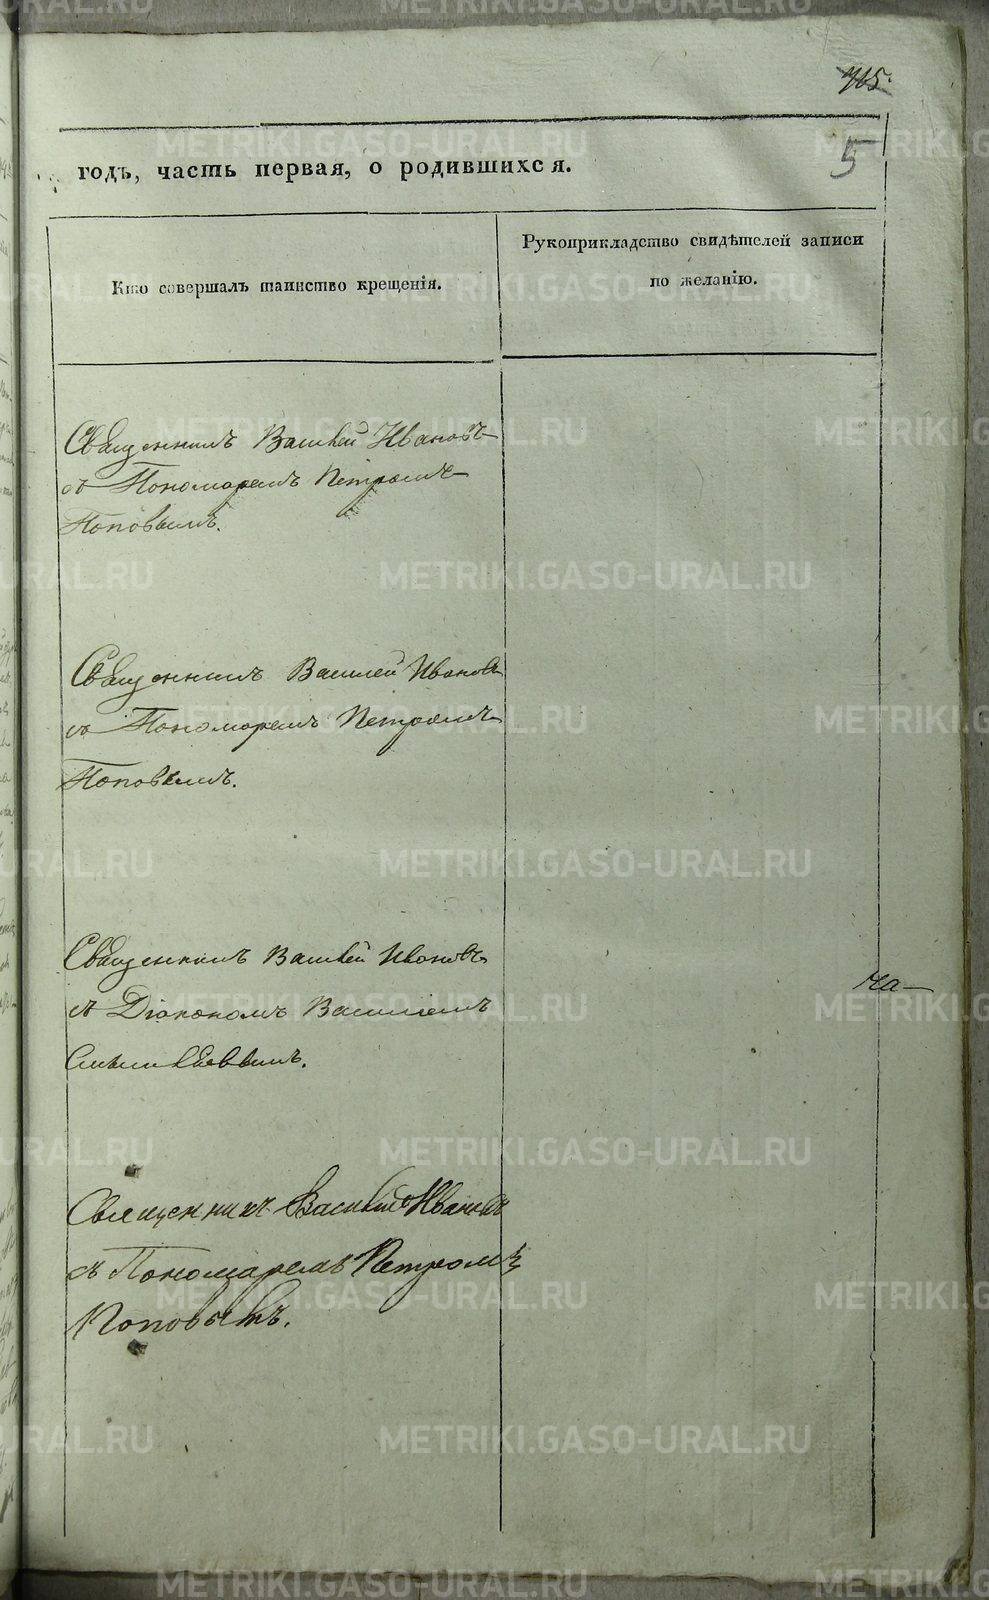 715.
5
годъ, часть первая, о родившихся.
Кто совершалъ таинство крещенія.
Рукоприкладство свидѣтелей записи
по желанію.
Священникъ Василей Ивановъ
съ Пономаремъ Петромъ
Поповымъ.
Священникъ Василей Ивановъ
съ Пономаремъ Петромъ
Поповымъ.
Священникъ Василей Ивановъ
съ Діакономъ Василіемъ
ча-
Священникъ Василій Ивановъ
съ Пономаремъ Петромъ
Поповымъ.
METRIKI.GASO-URAL.RU